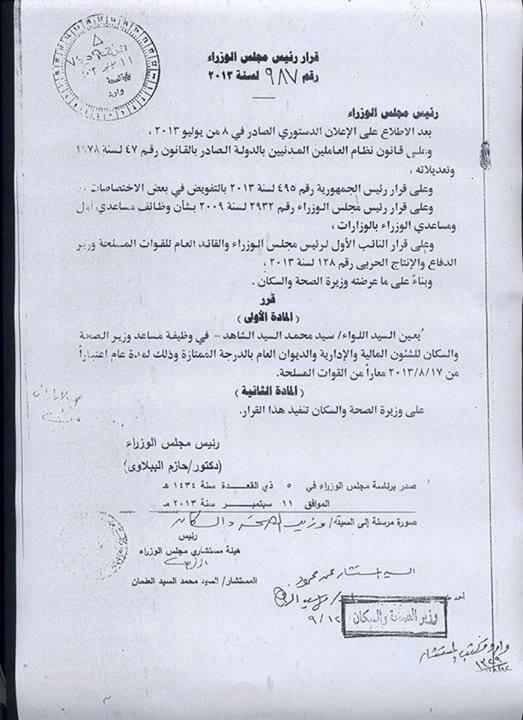 قرار رئيس مجلس الوزراء
رقم ٩٨٧ لسنة ٢٠١٣
رئيس مجلس الوزراء
بعد الاطلاع على الإعلان الدستوري الصادر في ٨ من يوليو ٢٠١٣ ،
وعلى قانون نظام العاملين المدنيين بالدولة الصادر بالقانون رقم ٤٧ لسنة ١٩٧٨
وتعديلاته ،
وعلى قرار رئيس الجمهورية رقم ٤٩٥ لسنة ٢٠١٣ بالتفويض في بعض الاختصاصات ،
وعلى قرار رئيس مجلس الوزراء رقم ٢٩٣٢ لسنة ٢٠٠٩ بشأن وظائف مساعدي أول
ومساعدي الوزراء بالوزارات ،
وعلى قرار النائب الأول لرئيس مجلس الوزراء والقائد العام للقوات المسلحة وزير
الدفاع والإنتاج الحربى رقم ١٢٨ لسنة ٢٠١٣ ،
وبناءً على ما عرضته وزيرة الصحة والسكان .
قرر
(المادة الأولى)
يُعين السيد اللواء/ سيد محمد السيد الشاهد – في وظيفة مساعد وزير الصحة
والسكان للشئون المالية والإدارية والديوان العام بالدرجة الممتازة وذلك لمدة عام اعتباراً
من ٢٠١٣/٨/١٧ معاراً من القوات المسلحة.
(المادة الثانية)
على وزيرة الصحة والسكان تنفيذ هذا القرار.
رئيس مجلس الوزراء
(دكتور/حازم الببلاوى)
صدر برئاسة مجلس الوزراء في ٥ ذي القعدة سنة ١٤٣٤ هـ
الموافق ١١ سبتمبر سنة ٢٠١٣ مـ
صورة مرسلة إلى السيد/ وزير الصحة والسكان
رئيس
هيئة مستشاري مجلس الوزراء
المستشار/ السيد محمد السيد الطحان
السيد المستشار محمد محمود
وزير الصحة والسكان
٩/١٢